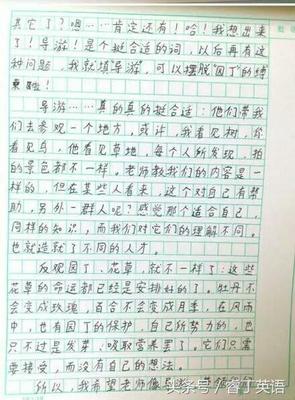 其它了？嗯……肯定还有！哈！我想出来
了！导游！是个挺合适的词，以后再有这
种问题，我就填"导游"，可以摆脱"园丁"的缚
束啦！
导游……真的真的挺合适：他们带我
们去参观一个地方，或许，我看见树，你
看见鸟，他看见草地，每个人所发现、拍
的景色都不一样。老师教我们的内容是一
样的，但在某些人看来，这个对自己有帮
助，另外一群人呢？感觉那个适合自己，
同样的知识，而我们对它们的理解不同。
也就造就了不同的人才。
反观园丁，花草，就不一样了：这些
花草的命运都已经是安排好的了。牡丹不
会变成玫瑰，百合不会变成月季，在风雨
中，也有园丁的保护，自己所努力的，也
只不过是发芽、吸取营养罢了。它们只需
要接受，而没有自己的想法。
所以，我希望老师像导
头条号／睿丁英语